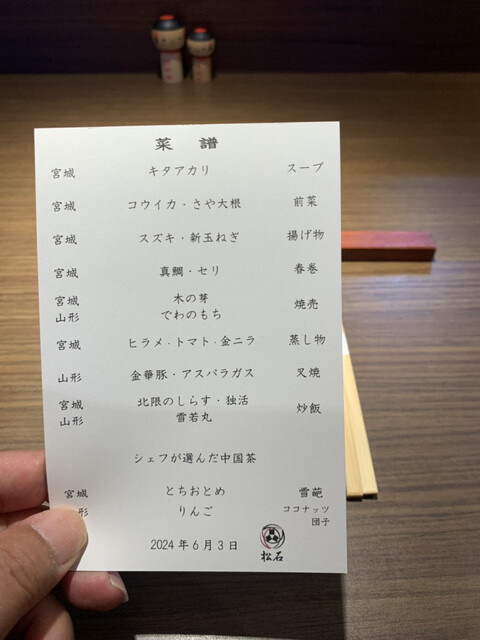 菜譜
宮城 キタアカリ スープ
宮城 コウイカ・さや大根 前菜
宮城 スズキ・新玉ねぎ 揚げ物
宮城 真鯛・セリ 春巻
宮城 木の芽 焼売
山形 でわのもち
宮城 ヒラメ・トマト・金ニラ 蒸し物
山形 金華豚・アスパラガス 叉焼
宮城 北限のしらす・独活 炒飯
山形 雪若丸
シェフが選んだ中国茶
宮城 とちおとめ 雪葩
形 りんご ココナッツ
団子
2024年6月3日 松石